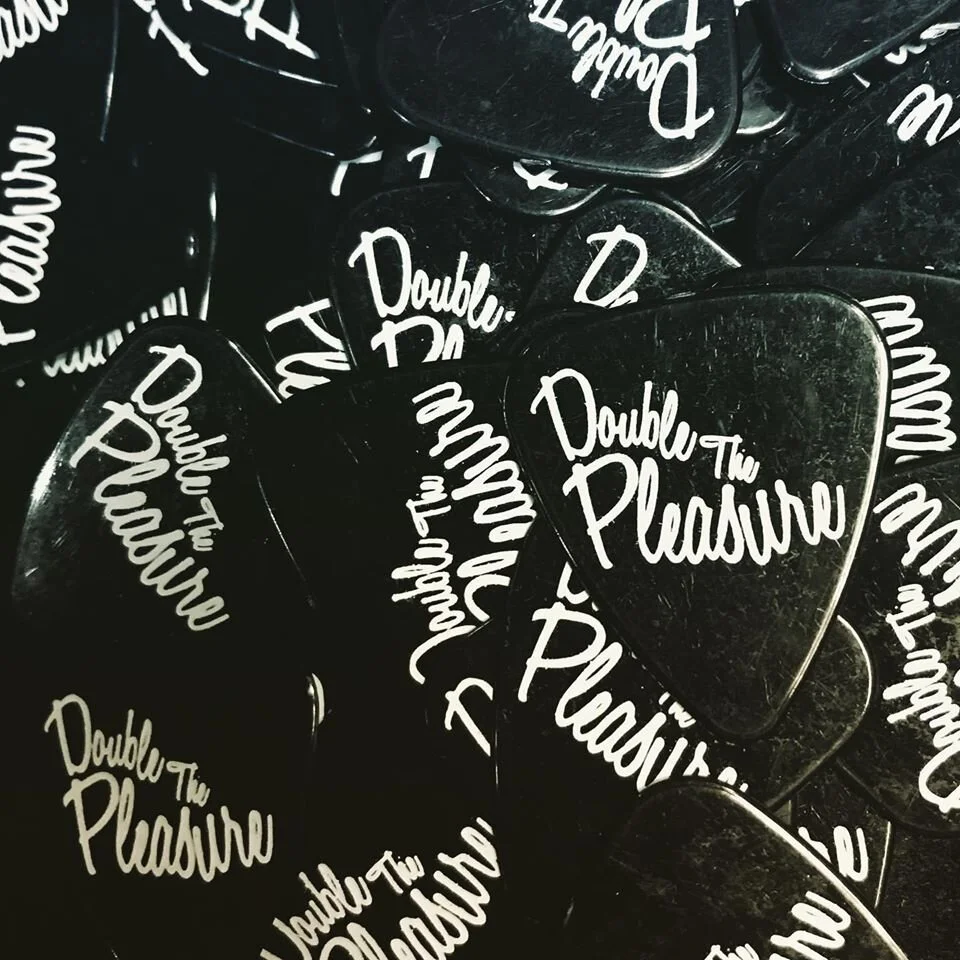 Double The
Pleasure
Double The
Pleasure
Double The
Pleasure
Double
Pleasure
Double The
Pleasure
Double The
Pleasure
Double The
Pleasure